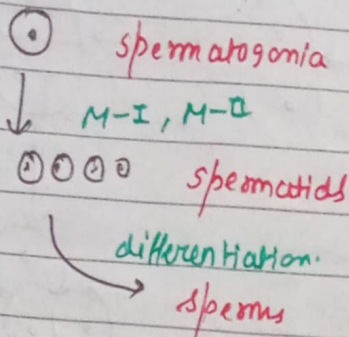 spermatogonia
M-I, M-II
spermatids
differentiation.
sperms